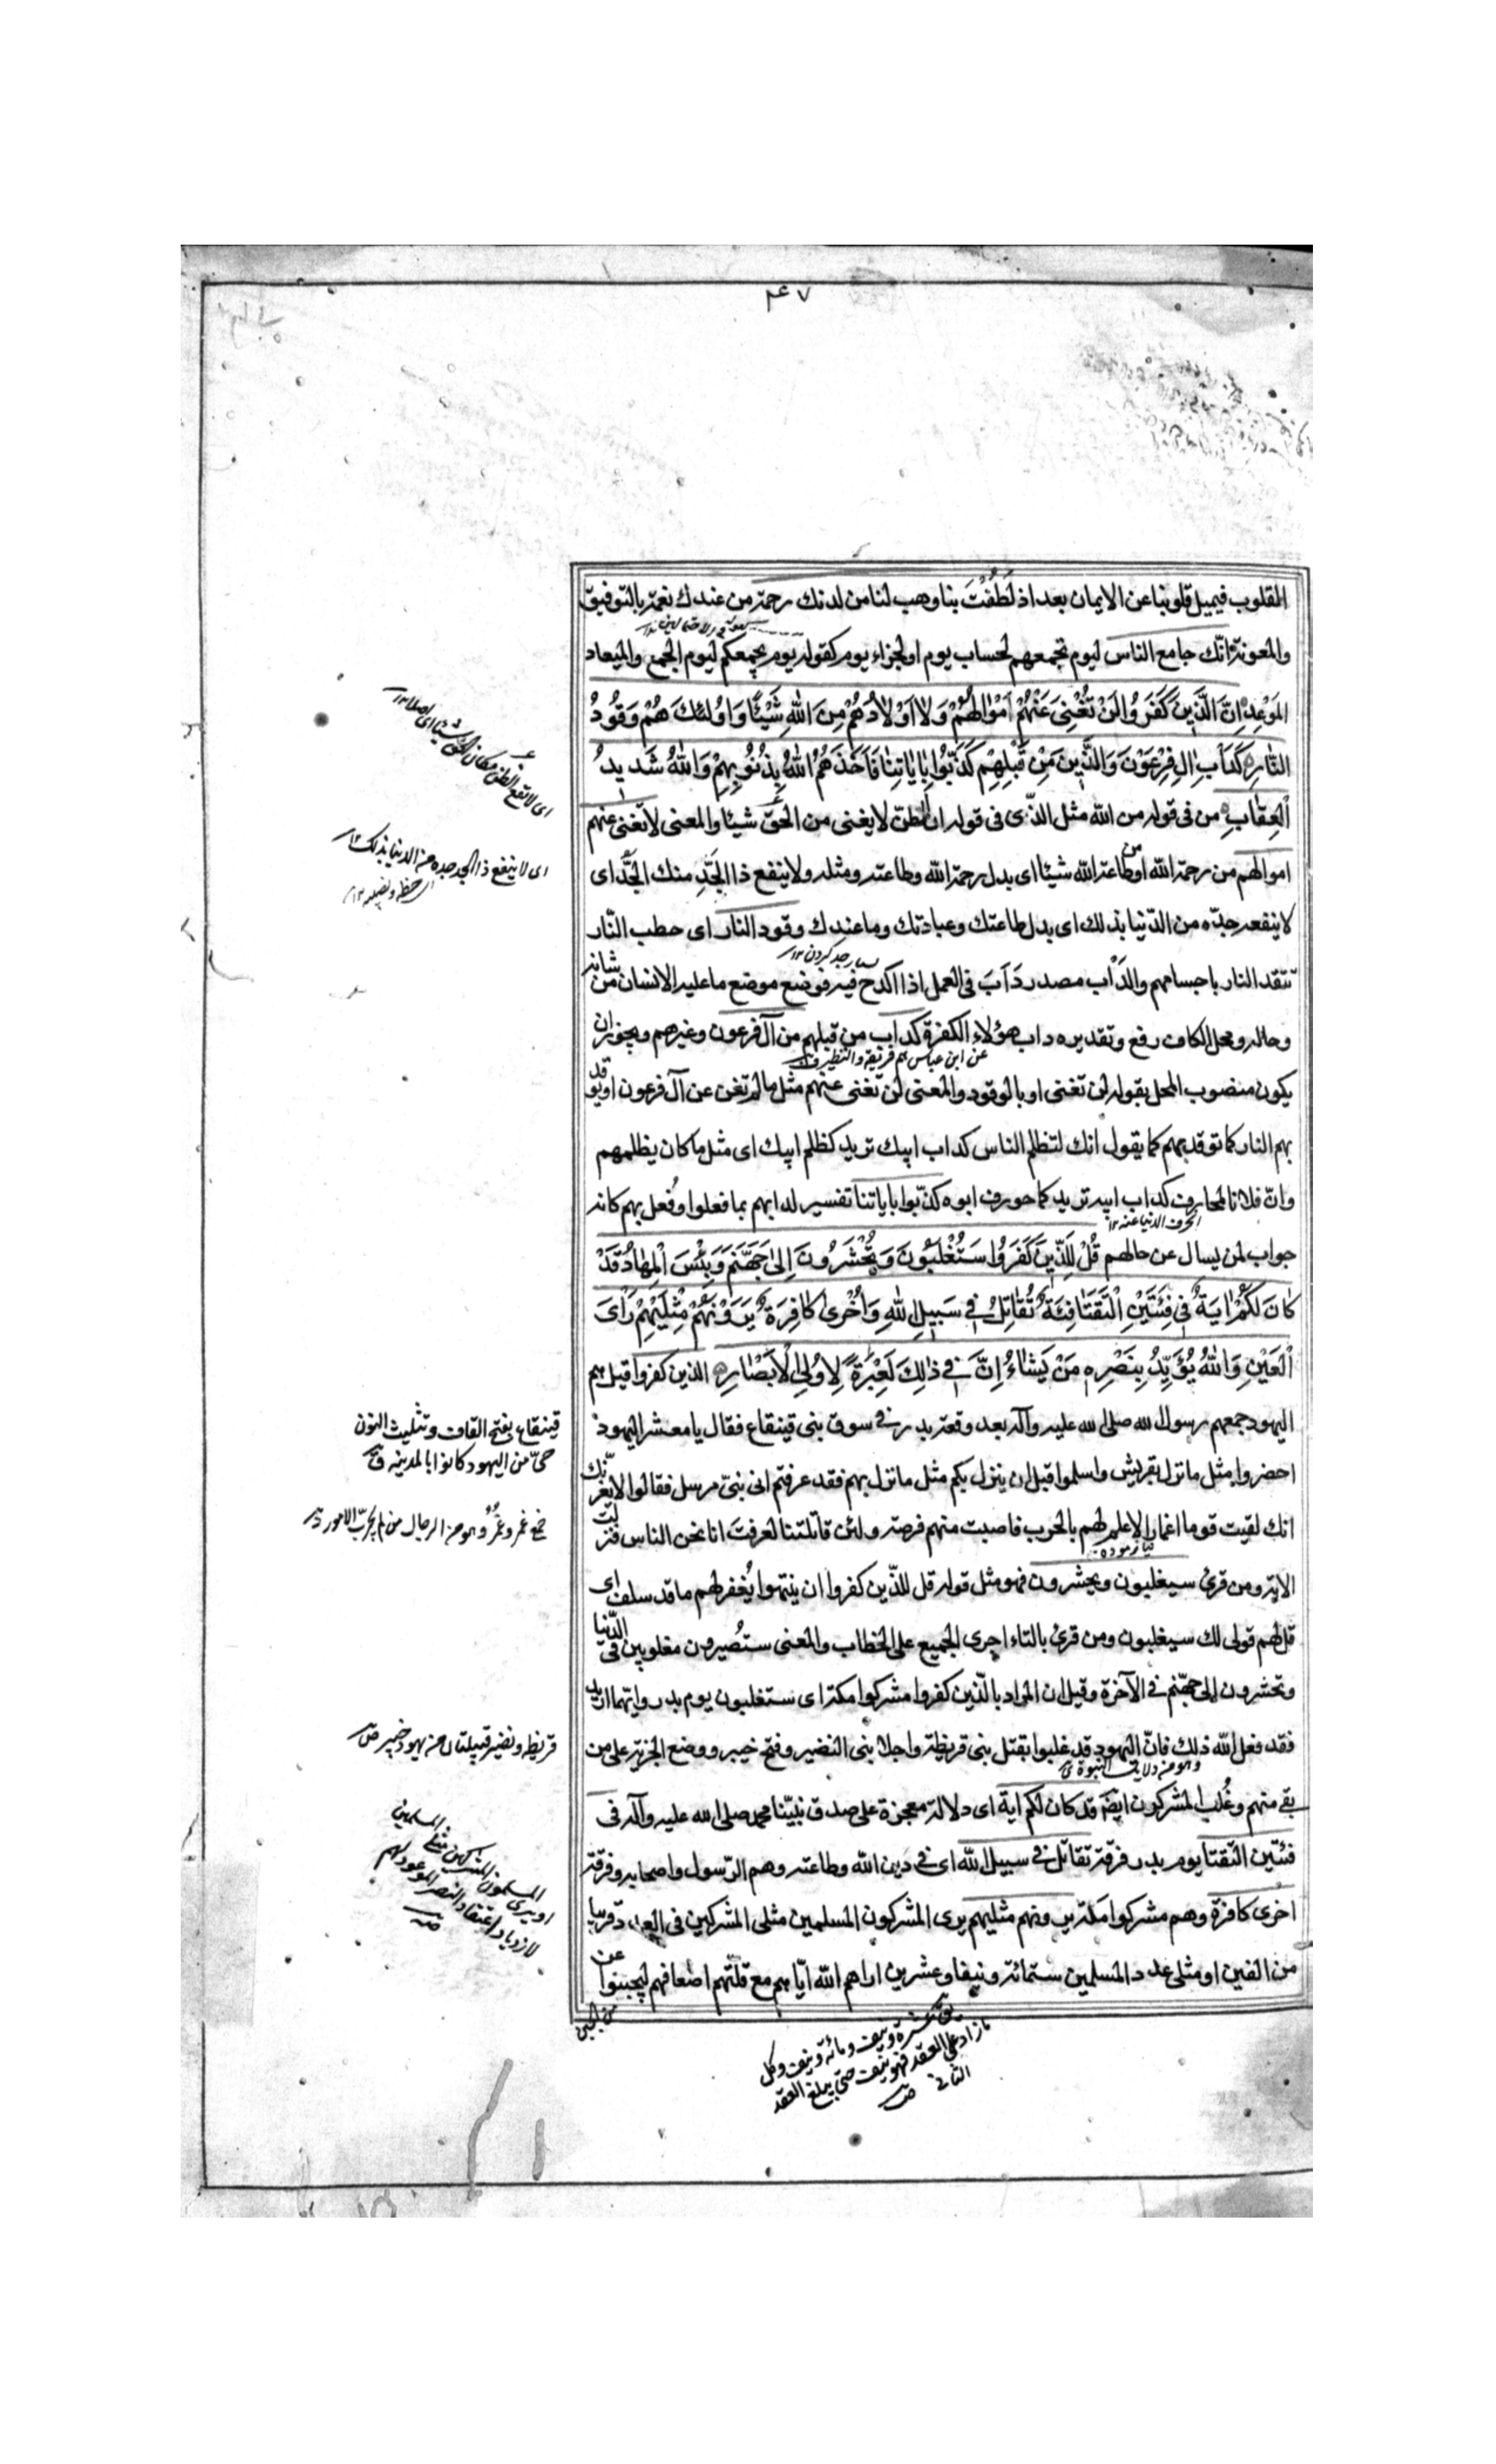 ٤٧
القلوب فيميل قلوبنا عن الايمان بعد اذ لَطُفْتَ بنا وهب لنا من لدنك رحمة من عندك نعمة بالتوفيق
والمعونة انّك جامع الناس ليوم تجمعهم لحساب يوم او لجزاء يوم كقوله يوم يجمعكم ليوم الجمع والميعاد
المَوْعِد اِنَّ الَّذِينَ كَفَرُوا لَنْ تُغْنِىَ عَنْهُمْ اَمْوٰالُهُمْ وَلا اَوْلاٰدُهُمْ مِنَ اللهِ شَيْئًا وَاُولئِكَ هُمْ وَقُودُ
النّٰارِ كَدَأبِ اٰلِ فِرْعَوْنَ وَالَّذِينَ مِنْ قَبْلِهِمْ كَذَّبُوا بِاٰيٰاتِنٰا فَاَخَذَهُمُ اللهُ بِذُنُوبِهِمْ وَاللهُ شَدِيدُ
الْعِقٰابِ من فى قوله من الله مثل الذى فى قوله ان الظنّ لا يغنى من الحقّ شيئا والمعنى لا تغنى عنهم
اموالهم من رحمة الله او من طاعة الله شيئا اى بدل رحمة الله وطاعته ومثله ولا ينفع ذا الجَدِّ منك الجَدُّ اى
لا ينفعه جدّه من الدّنيا بذلك اى بدل طاعتك وعبادتك وما عندك وقود النار اى حطب النّار
تتقد النار باجسامهم والدَأْب مصدر دَاَبَ فى العمل اذا اكدح فيه فوضع موضع ما عليه الانسان من شانه
وحاله ومحل الكاف رفع وتقديره داب هؤلاء الكفرة كداب من قبلهم من آل فرعون وغيرهم ويجوز ان
يكون منصوب المحل بقوله لن تغنى او بالوقود والمعنى لن تغنى عنهم مثل ما لم تغن عن آل فرعون او يوقد
بهم النار كما توقد بهم كما يقول انك لتظلم الناس كداب ابيك تريد كظلم ابيك اى مثل ما كان يظلمهم
وانّ فلانا لمحارف كداب ابيه تريد كما حورف ابوه كذّبوا باياتنا تفسير لدابهم بما فعلوا وفُعل بهم كانه
جواب لمن يسال عن حالهم قُلْ لِلَّذِينَ كَفَرُوا سَتُغْلَبُونَ وَتُحْشَرُونَ اِلىٰ جَهَنَّمَ وَبِئْسَ الْمِهٰادُ قَدْ
كٰانَ لَكُمْ اٰيَةٌ فِى فِئَتَيْنِ الْتَقَتٰا فِئَةٌ تُقٰاتِلُ فِى سَبِيلِ اللهِ وَاُخْرىٰ كٰافِرَةٌ يَرَوْنَهُمْ مِثْلَيْهِمْ رَأْىَ
الْعَيْنِ وَاللهُ يُؤَيِّدُ بِنَصْرِهِ مَنْ يَشٰاءُ اِنَّ فِى ذٰلِكَ لَعِبْرَةً لِاُولِى الْاَبْصٰارِ الذين كفروا قيل هم
اليهود جمعهم رسول الله صلى الله عليه وآله بعد وقعة بدر فى سوق بنى قينقاع فقال يا معشر اليهود
احضروا مثل ما نزل بقريش واسلموا قبل ان ينزل بكم مثل ما نزل بهم فقد عرفتم انى نبىّ مرسل فقالوا لا يغرّنّك
انك لقيت قوما اغمارا لا علم لهم بالحرب فاصبت منهم فرصة ولئن قاتلتنا لعرفت انا نحن الناس فنزلت
الاية ومن قرئ سيغلبون ويحشرون فهو مثل قوله قل للذّين كفروا ان ينتهوا يُغفر لهم ما قد سلف اى
قل لهم قولى لك سيغلبون ومن قرئ بالتاء اجرى الجميع على الخطاب والمعنى ستُصيرون مغلوبين فى الدّنيا
وتحشرون الى جهنّم فى الآخرة وقيل ان المراد بالّذين كفروا مشركوا مكة اى ستغلبون يوم بدر وايّهما اريد
فقد فعل الله ذلك فانّ اليهود قد غلبوا بقتل بنى قريظة واجلاء بنى النضير وفتح خيبر ووضع الجزية على من
بقى منهم وغُلب المشركون ايضا قد كان لكم اية اى دلالة معجزة على صدق نبيّنا محمد صلى الله عليه وآله فى
فئتين التقتا يوم بدر فرقة تقاتل فى سبيل الله اى فى دين الله وطاعته وهم الرّسول واصحابه وفرقة
اخرى كافرة وهم مشركوا مكة يرونهم مثليهم يرى المشركون المسلمين مثلى المشركين فى العدد قريبا
من الفين او مثلى عدد المسلمين ستمائة ونيفا وعشرين اراهم الله ايّاهم مع قلّتهم اضعافهم ليجبنوا عن
اى لا ينفع ذا الجد جده من الدنيا بذلك ١٢
قينقاع بفتح القاف وتثليث النون
حىّ من اليهود كانوا بالمدينة ق
جمع غمر وغُمُر وهو من الرجال من لم يجرّب الامور
قريظه ونضير قبيلتان من يهود خيبر ص
او يرى المسلمون المشركين مثلى المسلمين
لازدياد اعتقاد النصر الموعود لهم
يق عشرة ونيف ومائة ونيف وكل
ما زاد على العقد فهو نيف حتى يبلغ العقد
الثانى